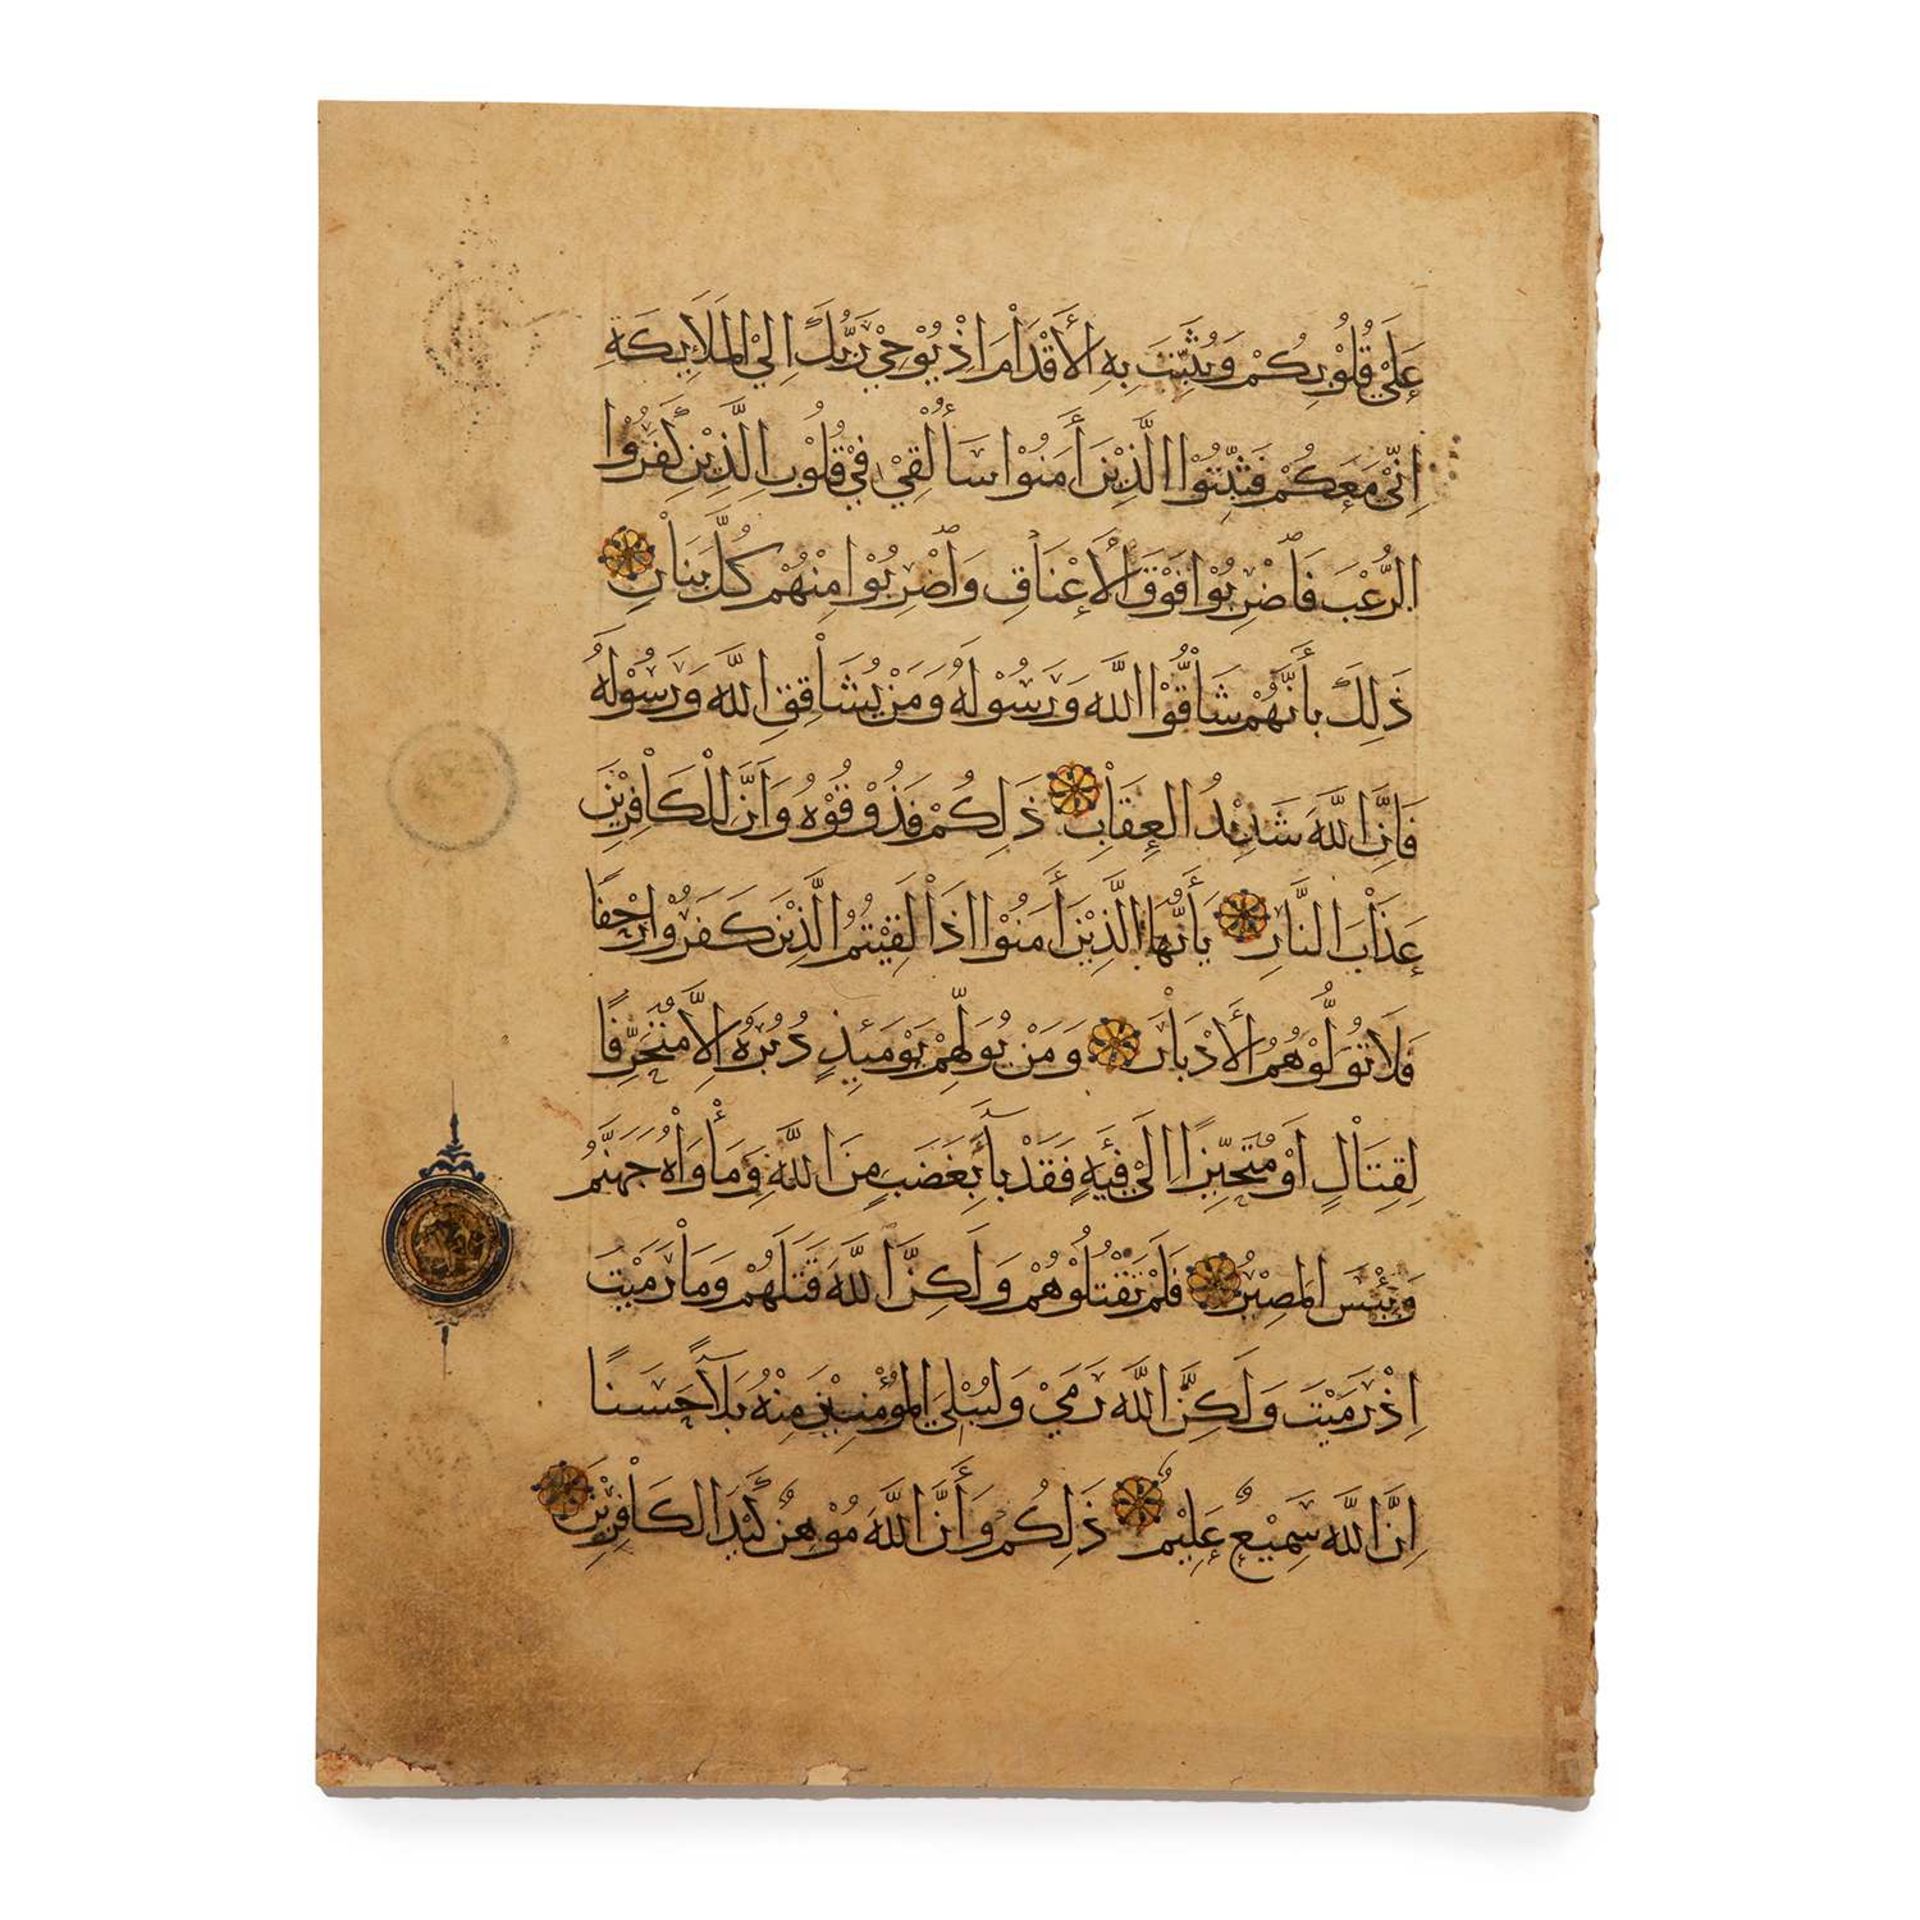 عَلَىٰ قُلُوْبِكُمْ وَيُثَبِّتَ بِهِ الْأَقْدَاْمَ اِذْ يُوْحِيْ رَبُّكَ اِلَيْ الْمَلَاَيِكَةِ
اِنِّيْ مَعَكُمْ فَثَبِّتُوْا الَّذِيْنَ أَمَنُوْا سَأُلْقِيْ فِيْ قُلُوْبِ الَّذِيْنَ كَفَرُوْا
الرُّعْبَ فَاضْرِبُوْا فَوْقَ الْأَعْنَاْقِ وَاضْرِبُوْا مِنْهُمْ كُلَّ بَنَاْنٍ
ذَلِكَ بِأَنَّهُمْ شَاْقُّوْا اللَّهَ وَرَسُوْلَهُ وَمَنْ يُشَاْقِقِ اللَّهَ وَرَسُوْلَهُ
فَاِنَّ اللَّهَ شَدِيْدُ الْعِقَاْبِ ذَلِكُمْ فَذُوْقُوْهُ وَاَنَّ لِلْكَاْفِرِيْنَ
عَذَاْبَ النَّاْرِ يَأَيُّهَا الَّذِيْنَ أَمَنُوْا اِذَاْ لَقِيْتُمُ الَّذِيْنَ كَفَرُوْا زَحْفًا
فَلَا تُوَلُّوْهُمُ الْأَدْبَاْرَ وَمَنْ يُوَلِّهِمْ يَوْمَيِذٍ دُبُرَهُ اِلَّا مُتَحَرِّفًا
لِقِتَاْلٍ اَوْ مُتَحَيِّزًا اِلَيْ فِيَةٍ فَقَدْ بَآءَ بِغَضَبٍ مِنَ اللَّهِ وَمَأْوَاْهُ جَهَنَّمُ
وَبِئْسَ الْمَصِيْرُ فَلَمْ تَقْتُلُوْهُمْ وَلَكِنَّ اللَّهَ قَتَلَهُمْ وَمَاْ رَمَيْتَ
اِذْ رَمَيْتَ وَلَكِنَّ اللَّهَ رَمَيْ وَلِيُبْلِيَ الْمُؤْمِنِيْنَ مِنْهُ بَلَآءً حَسَنًا
اِنَّ اللَّهَ سَمِيْعٌ عَلِيْمٌ ذَلِكُمْ وَأَنَّ اللَّهَ مُوْهِنُ كَيْدِ الْكَاْفِرِيْنَ